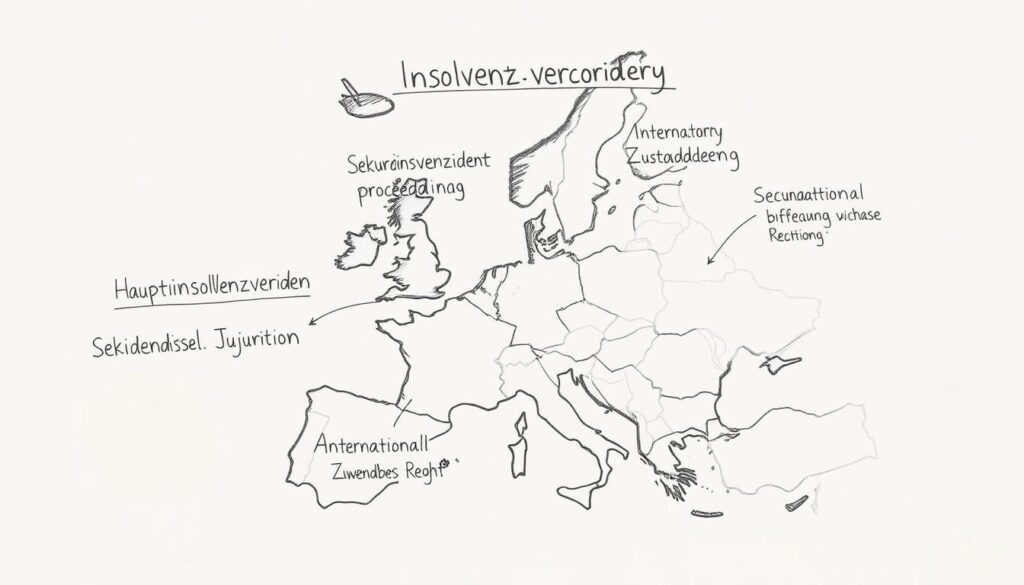 Insolvenz-vercoridery
Sekuroinsvenzident
proceeddinag
Anternatorry
Zustadddeeng
Secunaattional
biffeaung vichase
Recttiong
Hauptiinsolllenzveriden
Sekidendissel. Jujurition
Anternationall
Ziwendbes Reght